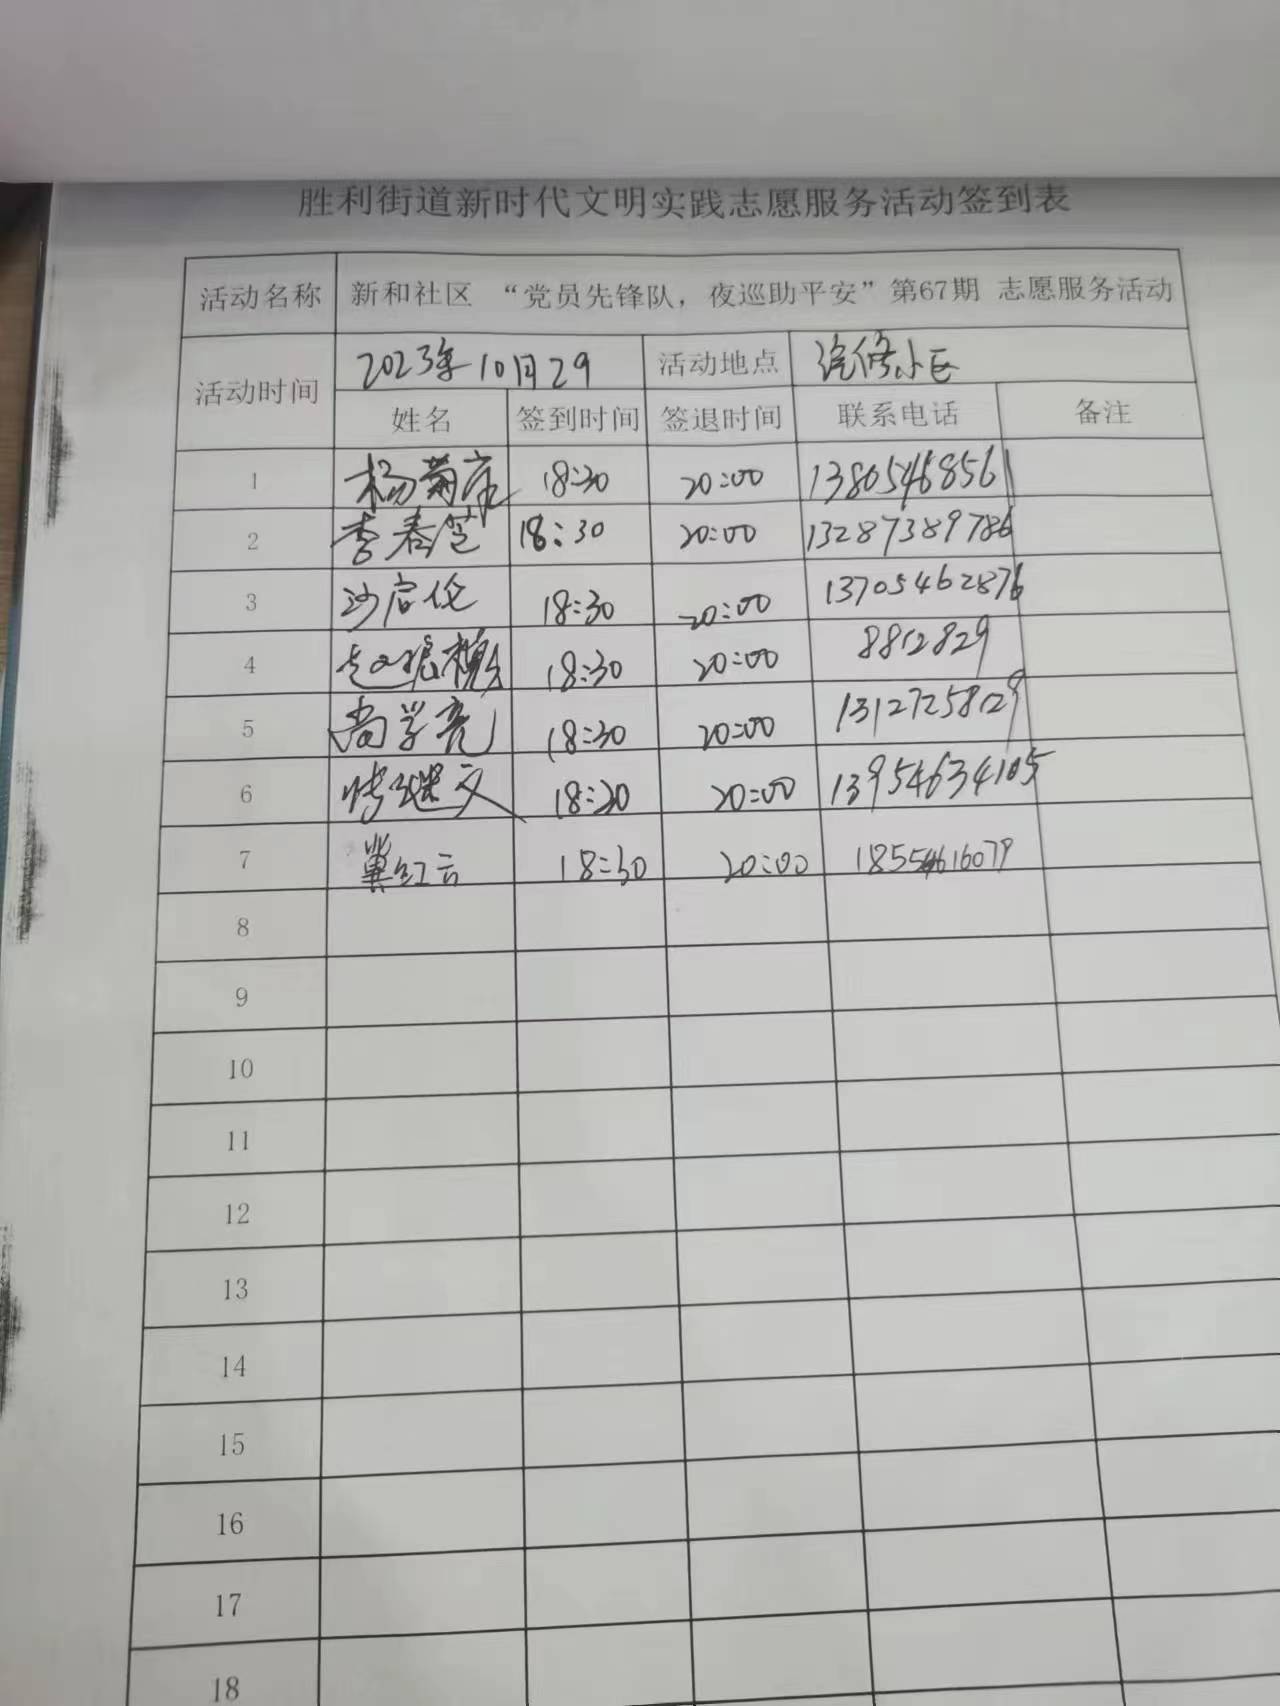 胜利街道新时代文明实践志愿服务活动签到表
活动名称 新和社区 “党员先锋队，夜巡助平安”第67期 志愿服务活动
活动时间 2023年10月29 活动地点 小区
姓名 签到时间 签退时间 联系电话 备注
1 杨菊 18:30 20:00 13805468561
2 李春 18:30 20:00 13287389786
3 沙启伦 18:30 20:00 13705462876
4 赵 18:30 20:00 8812829
5 尚学亮 18:30 20:00 13127258129
6 继文 18:30 20:00 13954634105
7 冀红云 18:30 20:00 18554616079
8
9
10
11
12
13
14
15
16
17
18